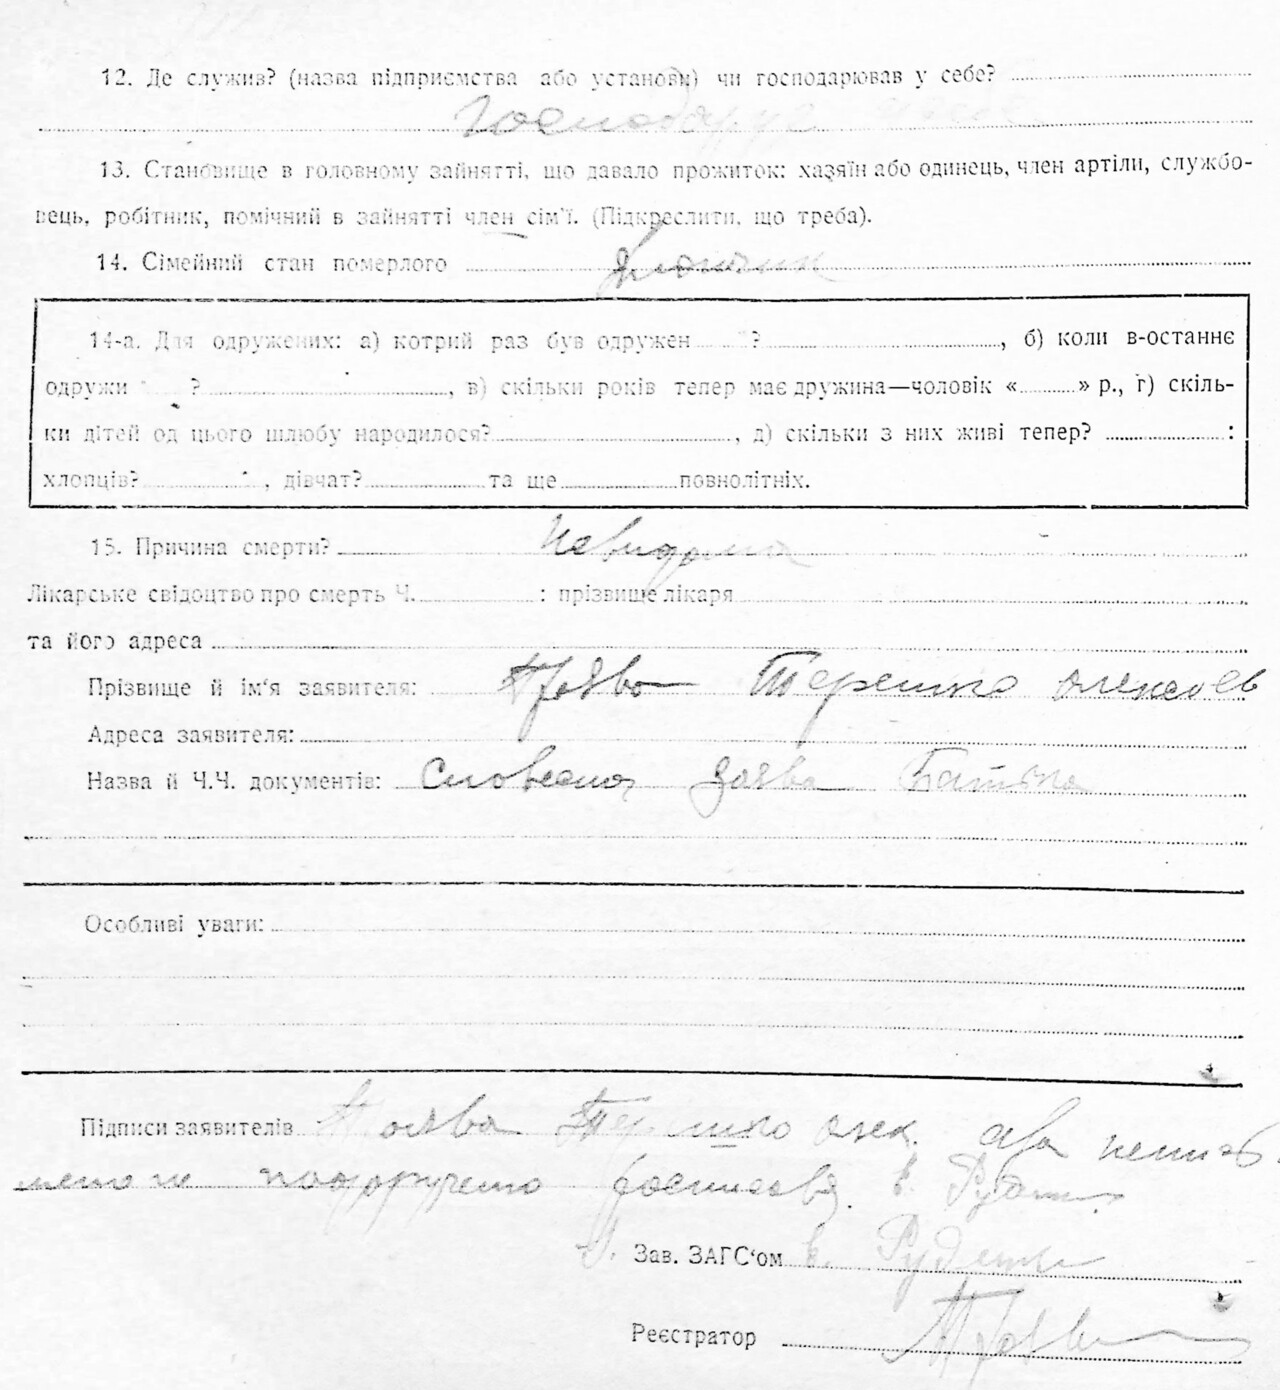 12. Де служив? (назва підприємства або установи) чи господарював у себе?
Господарує
13. Становище в головному зайнятті, що давало прожиток: хазяїн або одинець, член артіли, службо-
вець, робітник, помічний в зайнятті член сім'ї. (Підкреслити, що треба).
14. Сімейний стан померлого
14-а. Для одружених: а) котрий раз був одружен ? , б) коли в-останнє
одружи ? , в) скільки років тепер має дружина—чоловік « » р., г) скіль-
ки дітей од цього шлюбу народилося? , д) скільки з них живі тепер? :
хлопців? , дівчат? та ще повнолітніх.
15. Причина смерти? Невидома
Лікарське свідоцтво про смерть Ч. : прізвище лікаря
та його адреса
Прізвище й ім'я заявителя: Терешко Олексіев
Адреса заявителя:
Назва й Ч.Ч. документів: Словесна заява Батька
Особливі уваги:
Підписи заявителів Терешко Олек.
В. Руденко
Зав. ЗАГС'ом В. Руденко
Реєстратор